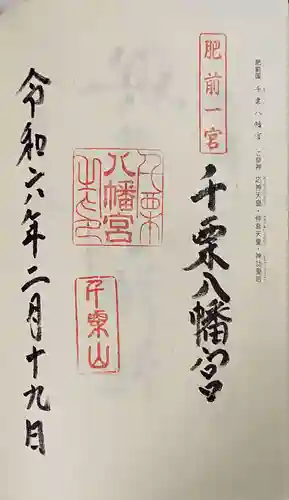 肥前国 千栗八幡宮 ご祭神 応神天皇・仲哀天皇・神功皇后
肥前一宮
千栗八幡宮
千栗
八幡宮
之印
千栗山
令和六年二月十九日